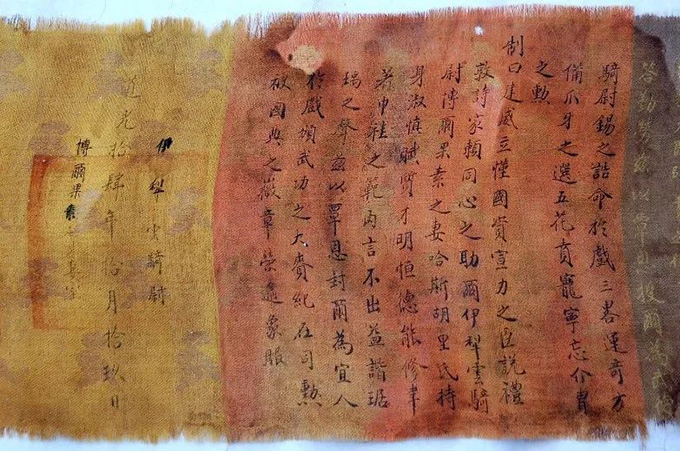 答勤勞茲以覃恩授爾為武德
騎尉錫之誥命於戲三畧運奇方
備爪牙之選五花賁寵寧忘介冑
之勳
制曰建威立懂國賞宣力之臣說禮
敦詩家賴同心之助爾伊犁雲騎
尉博爾果素之妻哈斯胡里氏持
身淑慎賦質才明恒德能修聿
著巾鞋之範內言不出益諧琚
瑀之聲茲以覃恩封爾為宜人
於戲頌武功之大賚紀在司勲
被國典之徽章榮逾象服
伊犁雲騎尉
道光拾肆年拾月拾玖日
博爾果素